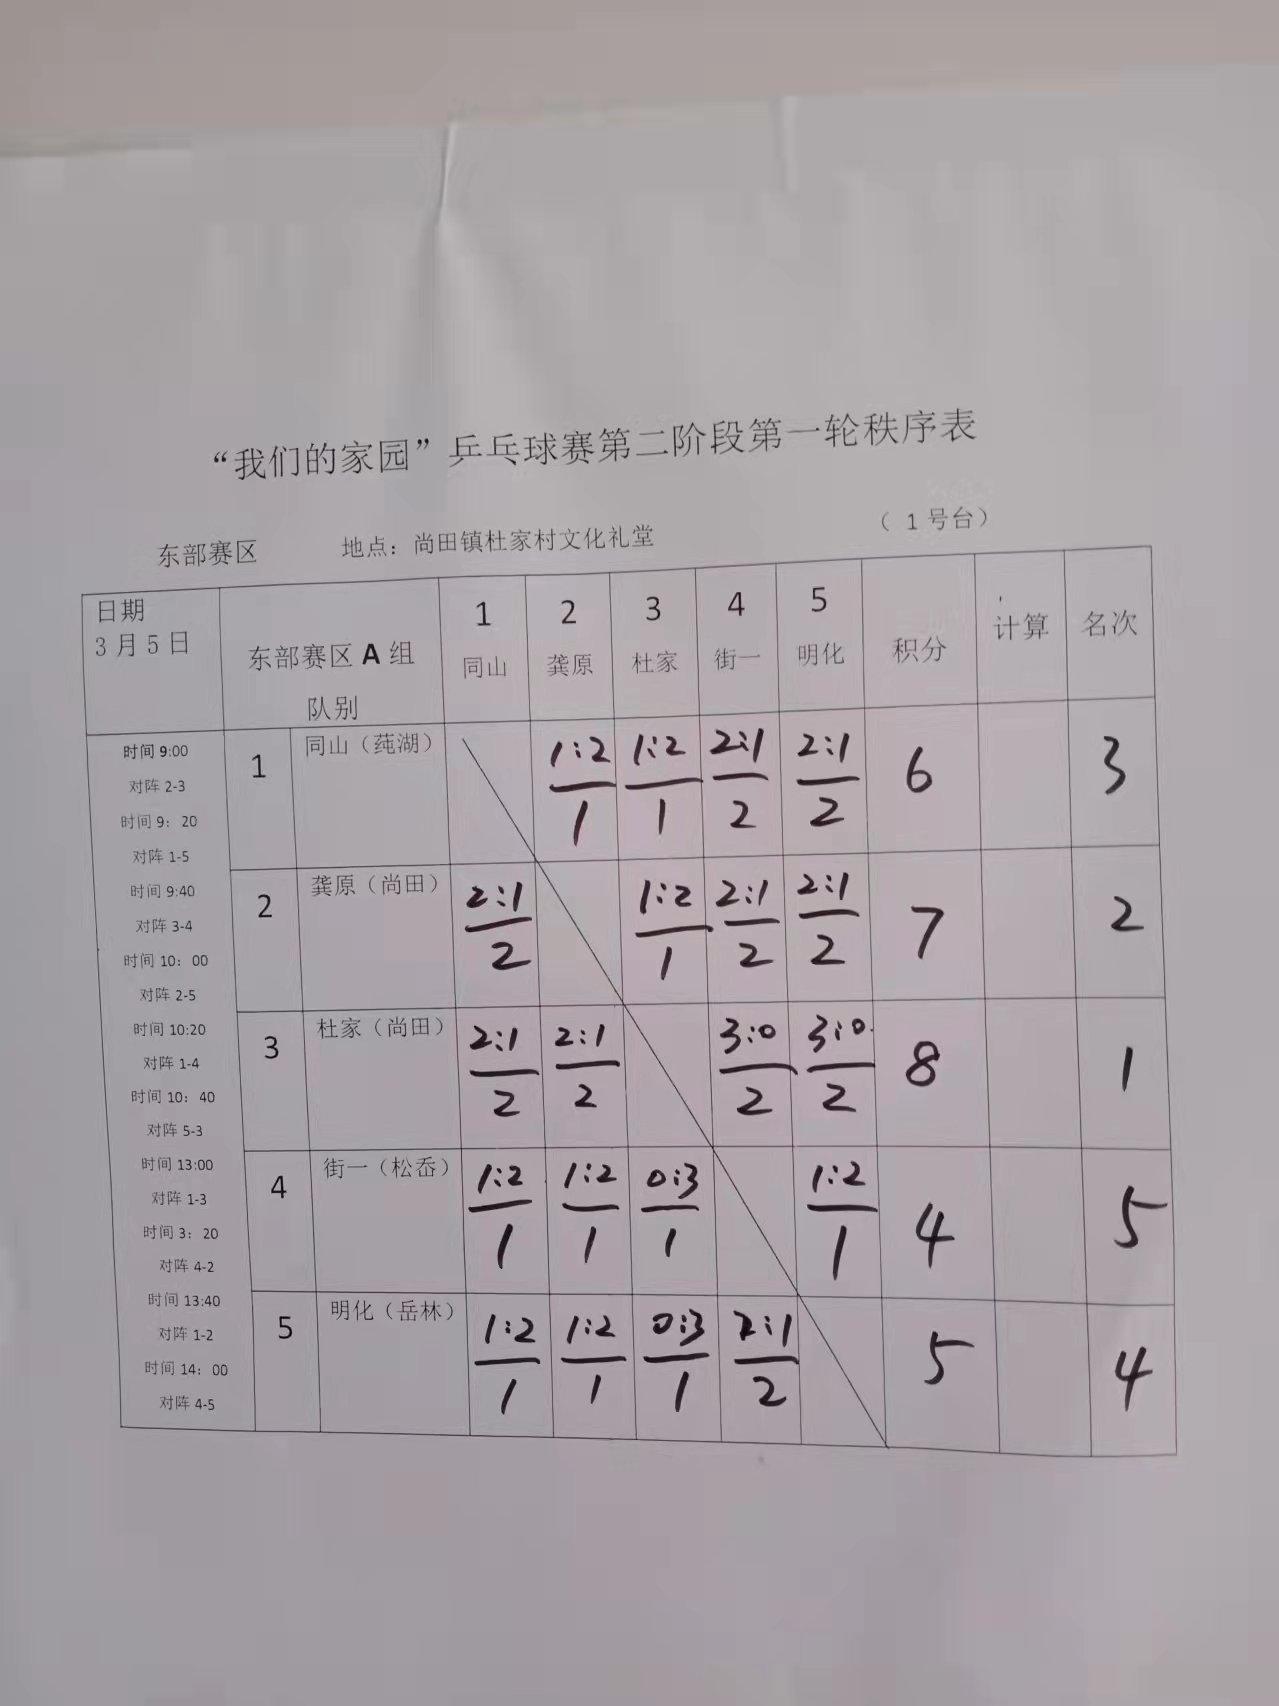 “我们的家园”乒乓球赛第二阶段第一轮秩序表
东部赛区 地点：尚田镇杜家村文化礼堂 （1号台）
日期
3月5日
东部赛区A组
队别
1 2 3 4 5
同山 龚原 杜家 街一 明化 积分 计算 名次
时间 9:00
对阵 2-3
时间 9：20
对阵 1-5
时间 9:40
对阵 3-4
时间 10：00
对阵 2-5
时间 10:20
对阵 1-4
时间 10：40
对阵 5-3
时间 13:00
对阵 1-3
时间 3：20
对阵 4-2
时间 13:40
对阵 1-2
时间 14：00
对阵 4-5
1 同山（莼湖） 1:2 1:2 2:1 2:1 6 3
1 1 2 2
2 龚原（尚田） 2:1 1:2 2:1 2:1 7 2
2 1 2 2
3 杜家（尚田） 2:1 2:1 3:0 3:0 8 1
2 2 2 2
4 街一（松岙） 1:2 1:2 0:3 1:2 4 5
1 1 1 1
5 明化（岳林） 1:2 1:2 0:3 2:1 5 4
1 1 1 2